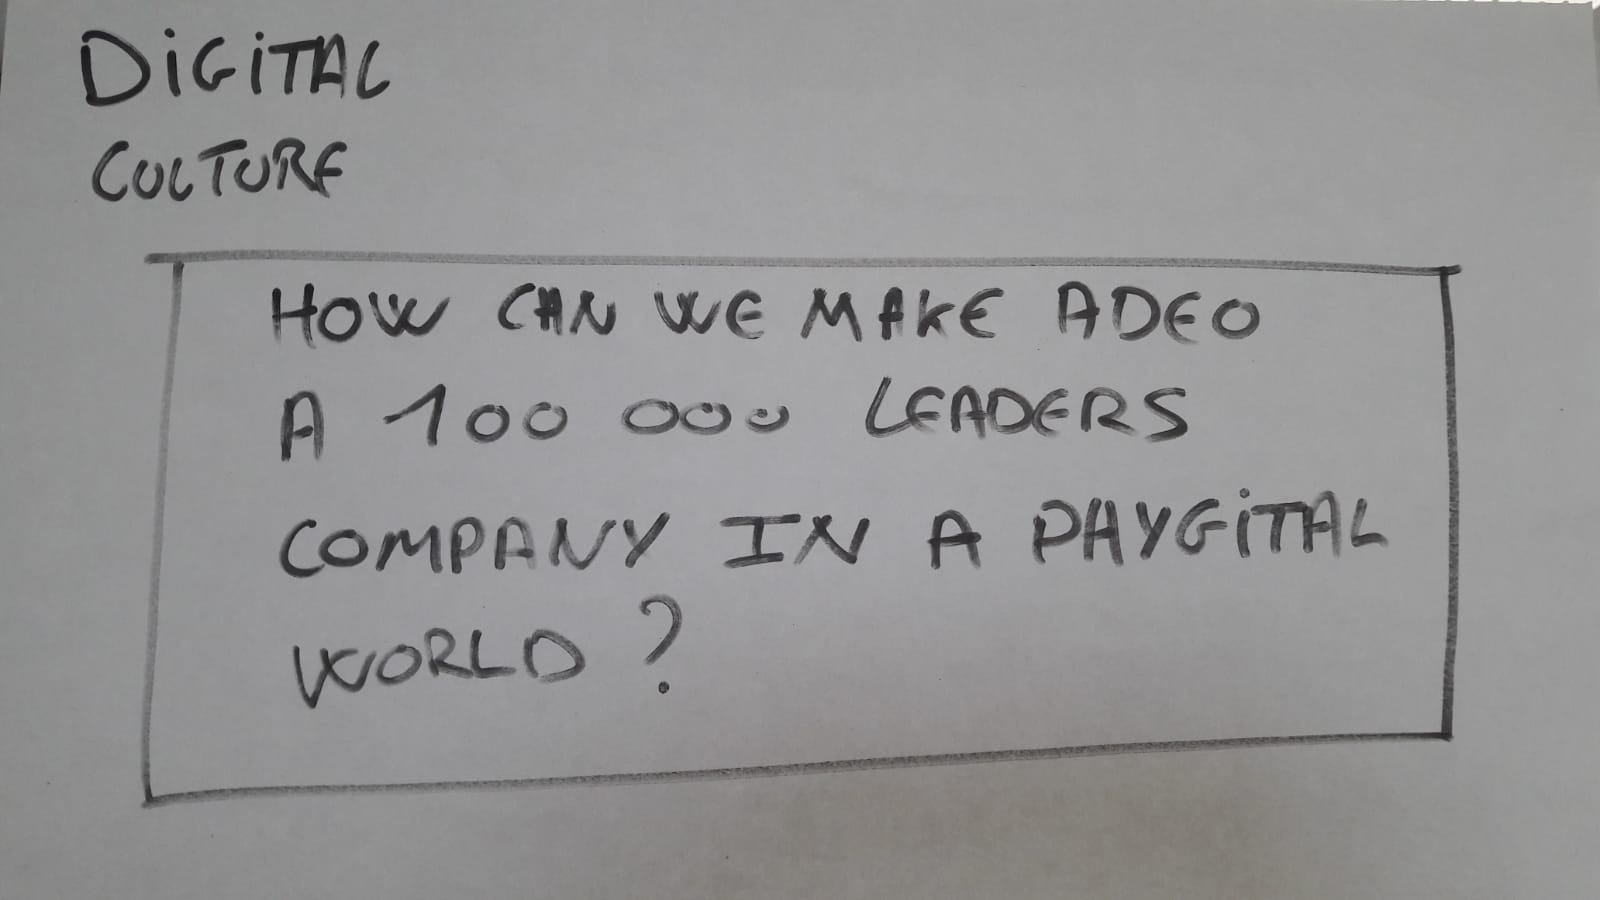 DiGiTAL
CULTURE
HOW CAN WE MAKE ADEO
A 100 000 LEADERS
COMPANY IN A PHYGiTAL
WORLD ?